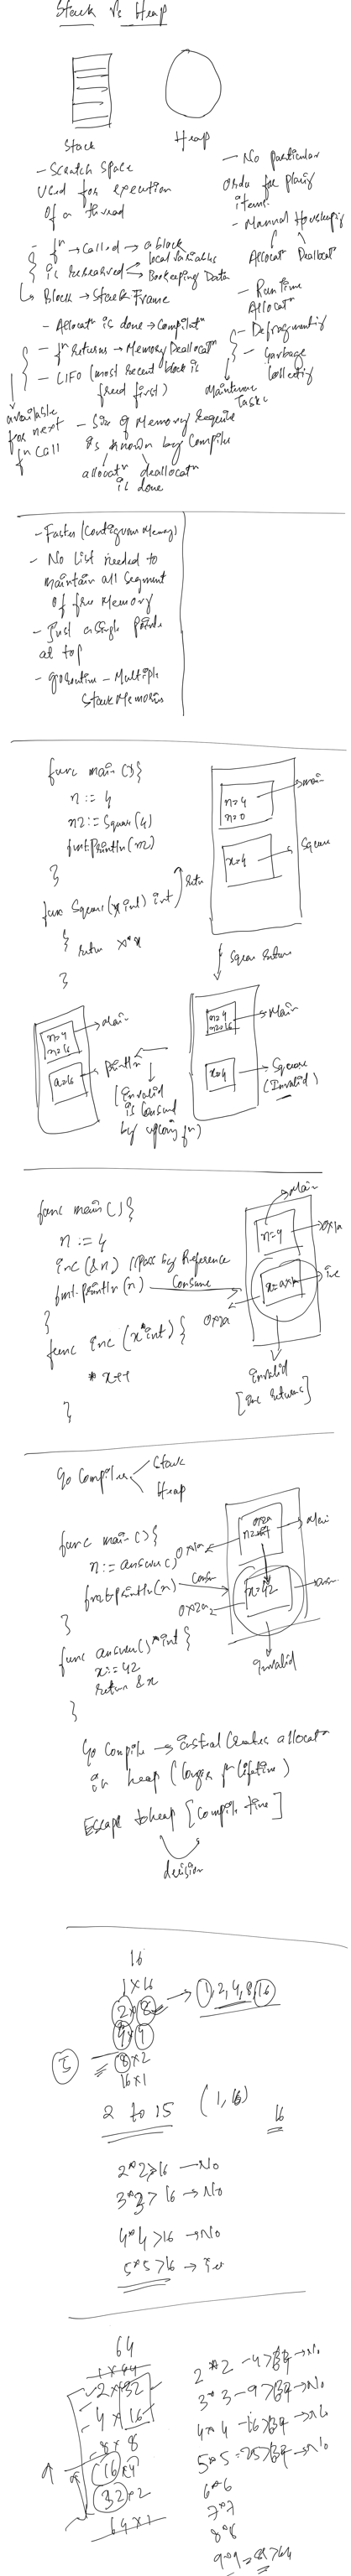 Stack Vs Heap
Stack
Heap
- Scratch Space
used for execution
of a thread
- fn → called → a block
is reserved → local variables
Bookeeping Data
↳ Block → Stack Frame
- Allocatn is done → Compilatn
- fn returns → Memory Deallocatn
- LIFO (most recent block is
freed first)
available
for next
fn call
- Size of Memory require
is known by Compile
allocatn deallocatn
is done
- No particular
order for placing
items.
- Manual Housekeeping
Allocatn Deallocatn
- Run time
Allocatn
- Defragmenting
- Garbage
Collecting
Maintenance
Tasks
- Faster (Contiguous Memory)
- No List needed to
maintain all segment
of free Memory
- Just a single pointer
at top
- goroutine - Multiple
Stack Memories
func main () {
n := 4
n2 := Square(4)
fmt.Println(n2)
}
func Square(x int) int
{ return x*x
}
return
n=4
n2=0
main
x=4
Square
Square returns
n=4
n2=16
main
a=16
println
(Invalid
is consumed
by upcoming fn)
n=4
n2=16
Main
x=4
Square
(Invalid)
func main () {
n := 4
inc(&n) //Pass by Reference
fmt.Println(n) Consume
}
func inc (x *int) {
*x++
}
Main
n=4
0x1a
inc
0x1a
Invalid
[inc returns]
Go Compiler
Stack
Heap
func main () {
n := answer()
fmt.println(n)
}
func answer() *int {
x := 42
return &x
}
0x1a
0x2a
Main
x=42
0x2a
Invalid
Go Compile → instead creates allocatn
in heap
Escape to heap [Compile time]
decision
16
1 x 16
2 x 8
4 x 4
8 x 2
16 x 1
1, 2, 4, 8, 16
5
2 to 15 (1, 16)
16
2*2 > 16 → No
3*3 > 16 → No
4*4 > 16 → No
5*5 > 16 → Yes
64
1 x 64
2 x 32
4 x 16
8 x 8
16 x 4
32 x 2
64 x 1
2 * 2 - 4 > 64 → No
3*3 - 9 > 64 → No
4*4 - 16 > 64 → No
5*5 - 25 > 64 → No
6*6
7*7
8*8
9*9 = 81 > 64